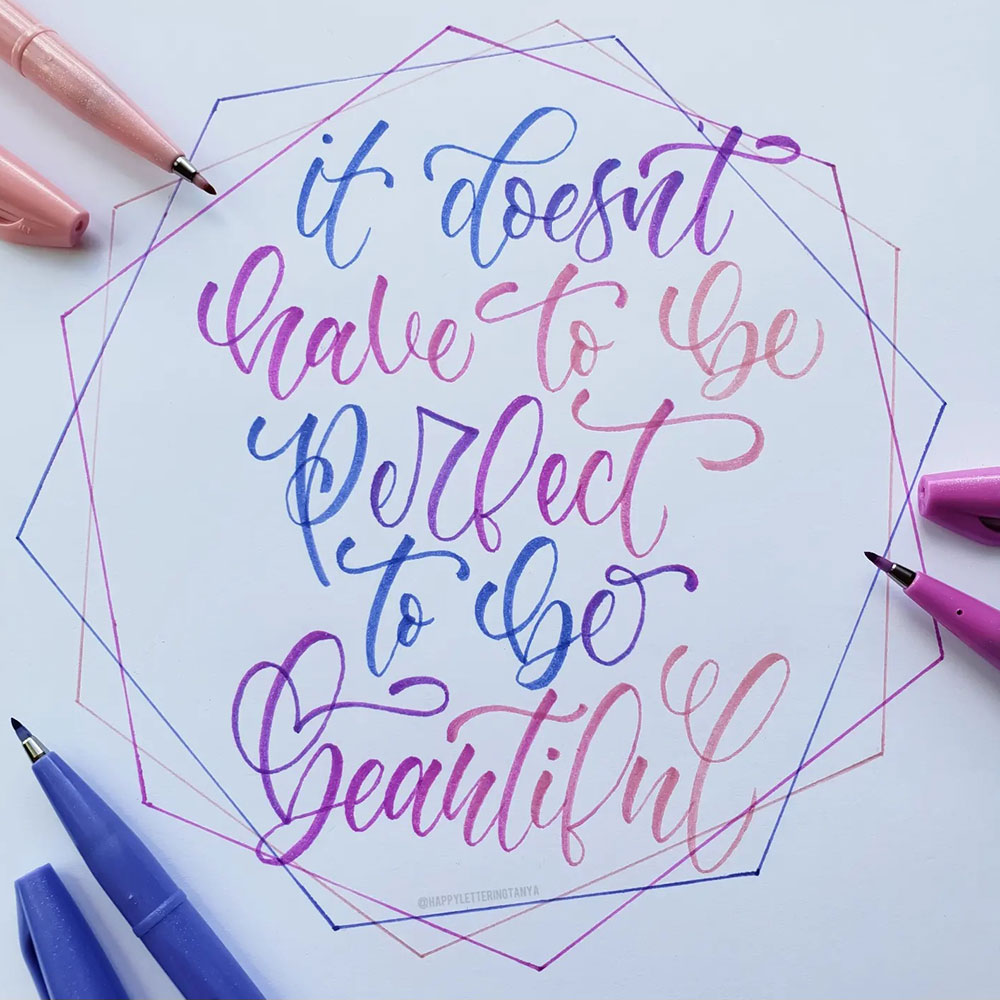 it doesn't
have to be
perfect
to be
beautiful
@HAPPYLETTERINGTANYA